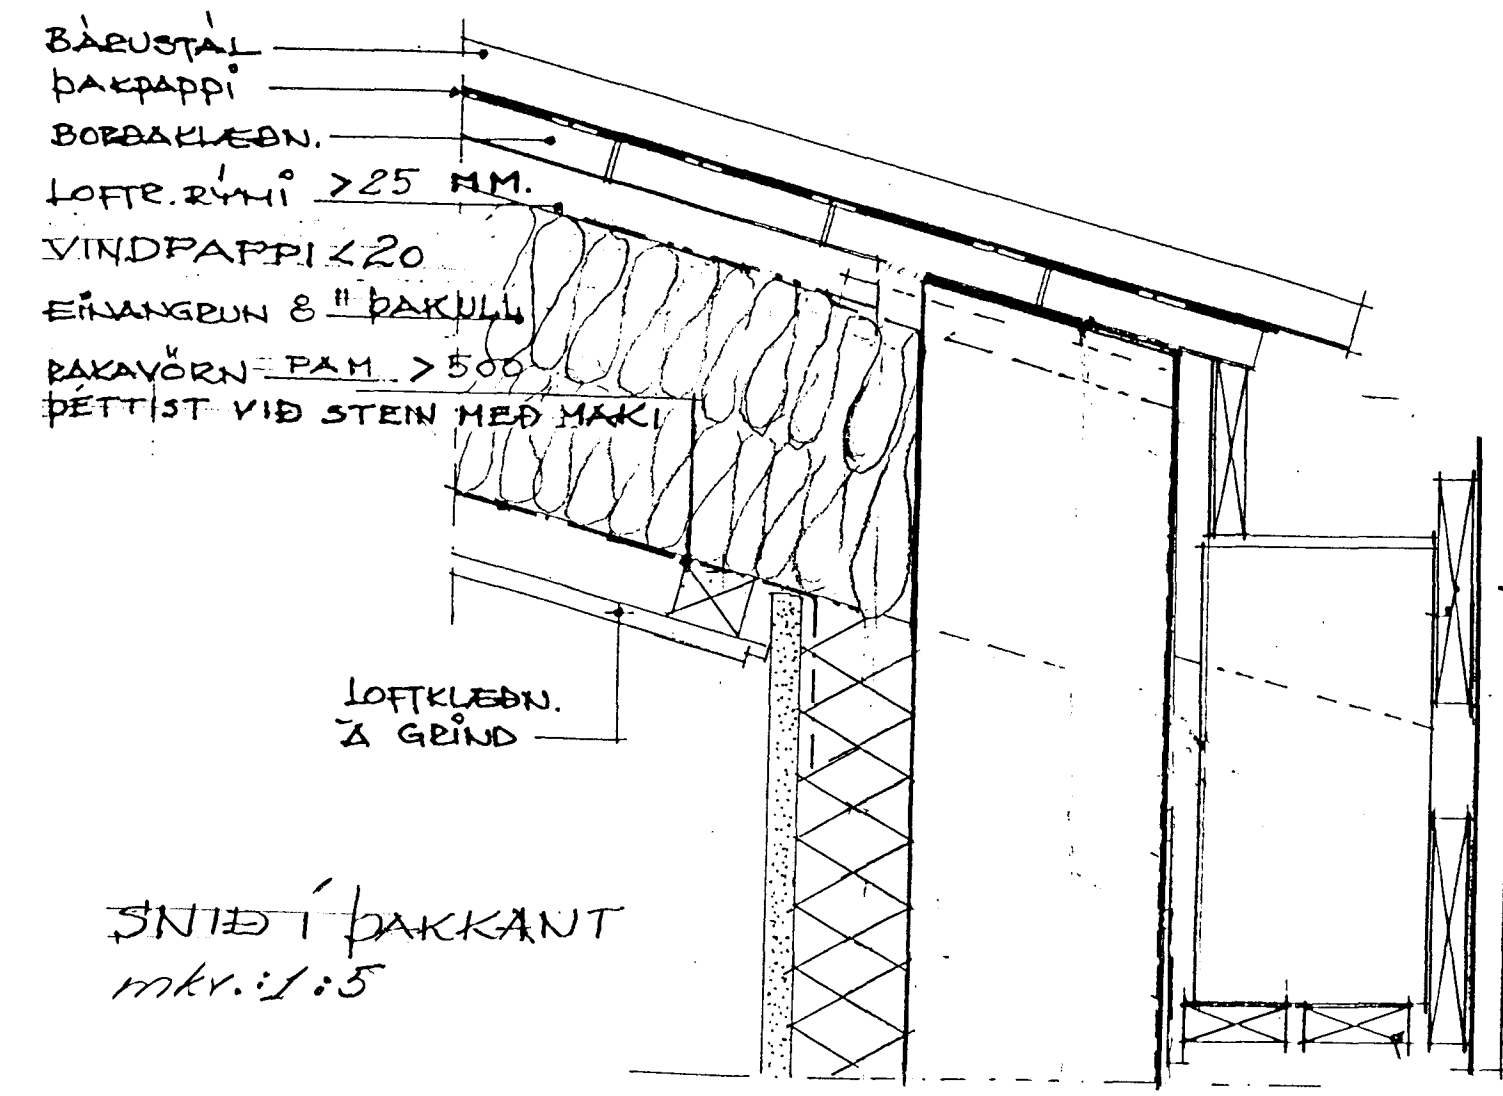 BÁRUSTÁL
ÞAKPAPPI
BORÐAKLÆÐN.
LOFTR.RÝMI >25 MM.
VINDPAPPI <20
EINANGRUN 8" ÞAKULL
RAKAVÖRN PAM >500
ÞÉTTIST VIÐ STEIN MEÐ MAKI
LOFTKLÆÐN.
Á GRIND
SNIÐ Í ÞAKKANT
mkv.:1:5